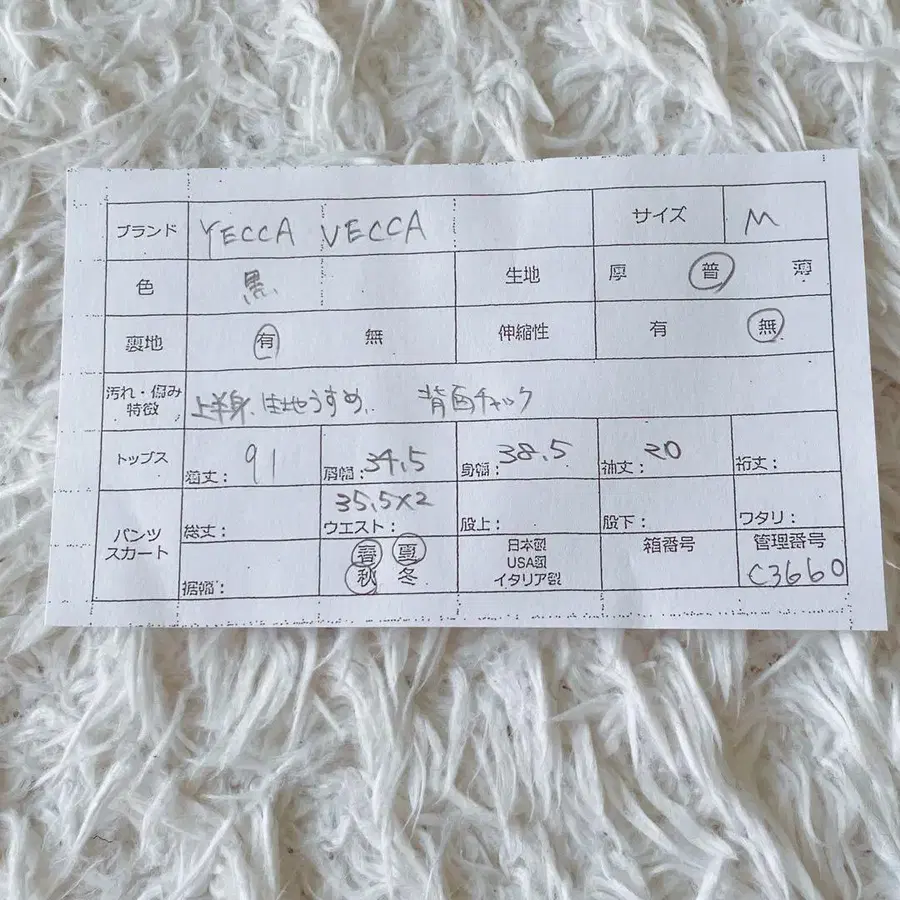 ブランド YECCA VECCA サイズ M
色 黒 生地 厚 普 薄
裏地 有 無 伸縮性 有 無
汚れ・傷み
特徴 上半身、生地うすめ、 背面チャック
トップス 着丈: 91 肩幅: 34.5 身幅: 38.5 袖丈: 20 裄丈:
パンツ
スカート 総丈: 35.5×2 ウエスト: 股上: 股下: ワタリ:
裾幅: 春 夏 秋 冬
日本製
USA製
イタリア製
箱番号
管理番号
C3660